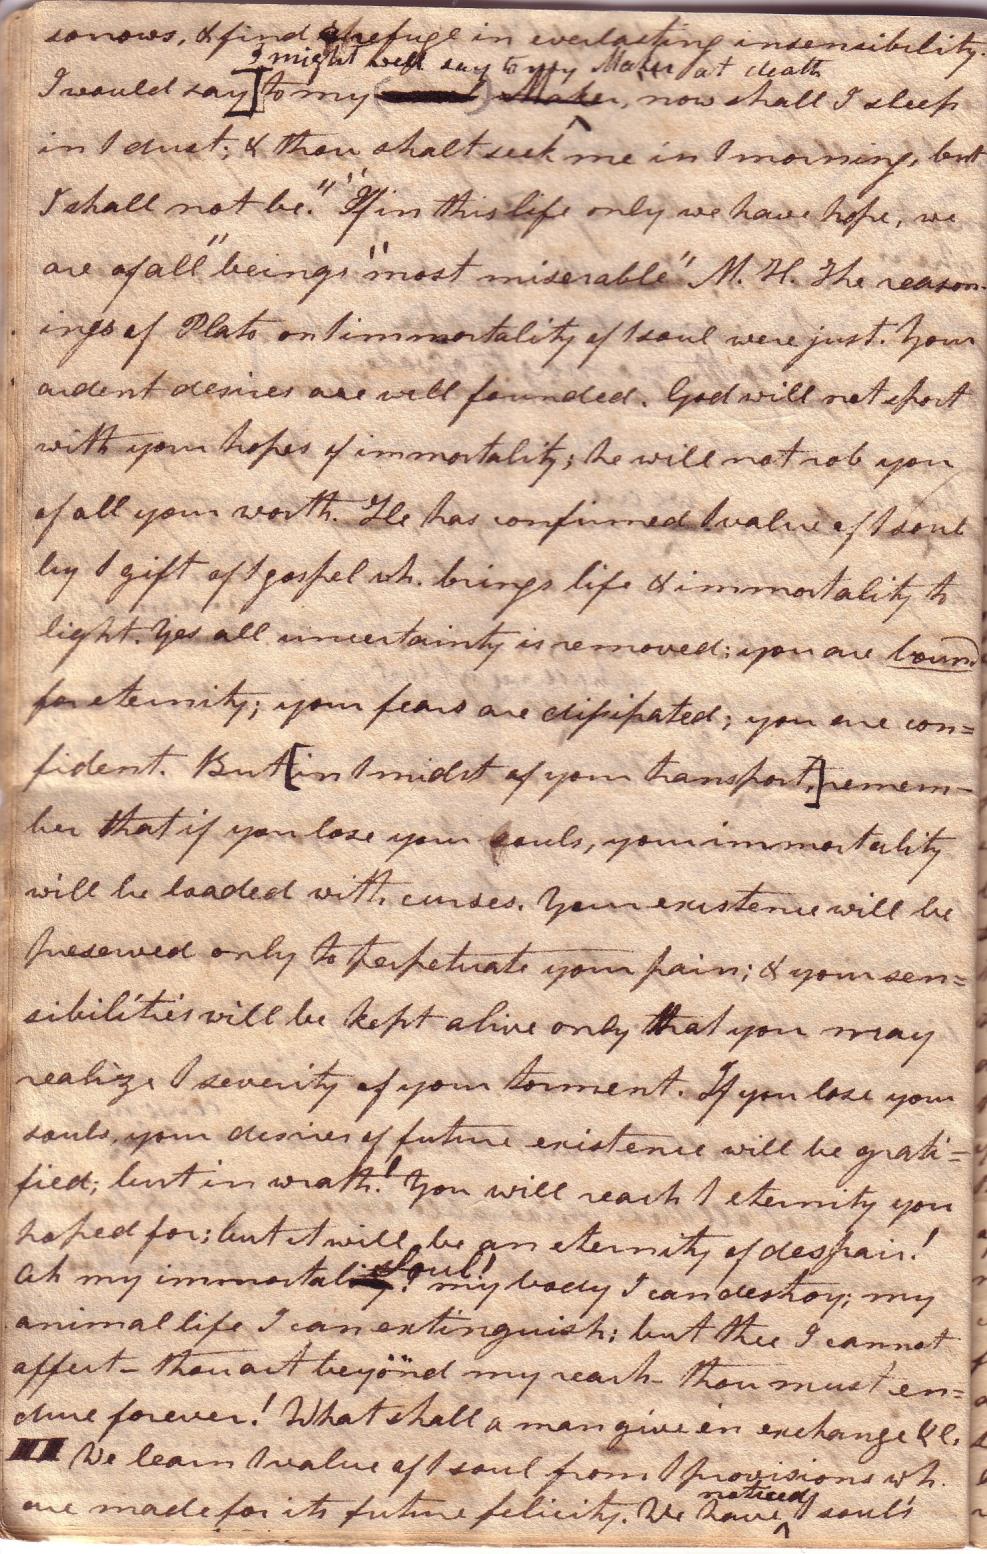 sorrows, & find a refuge in everlasting insensibility.
I might well say to my Maker at death
I would say] to my Maker, now shall I sleep
in / dust; & thou shalt seek me in / morning, but
I shall not be." "If in this life only we have hope, we
are of all" beings "most miserable" M. H. The reason-
ings of Plato on / immortality of / soul were just. Your
ardent desires are well founded. God will not sport
with your hopes of immortality; he will not rob you
of all your worth. He has confirmed / value of / soul
by / gift of / gospel wh. brings life & immortality to
light. Yes all uncertainty is removed; you are bound
for eternity; your fears are dissipated; you are con=
fident. But [in / midst of your transport,] remem-
ber that if you lose your souls, your immortality
will be loaded with curses. Your existence will be
preserved only to perpetuate your pain; & your sen=
sibilities will be kept alive only that you may
realize / severity of your torment. If you lose your
souls, your desires of future existence will be grati=
fied; but in wrath! You will reach / eternity you
hoped for; but it will be an eternity of despair!
Ah my immortal Soul! my body I can destroy; my
animal life I can extinguish; but thee I cannot
affect – thou art beyond my reach – thou must en=
dure forever! What shall a man give in exchange &c.
III We learn / value of / soul from / provisions wh.
are made for its future felicity. We have noticed / soul's